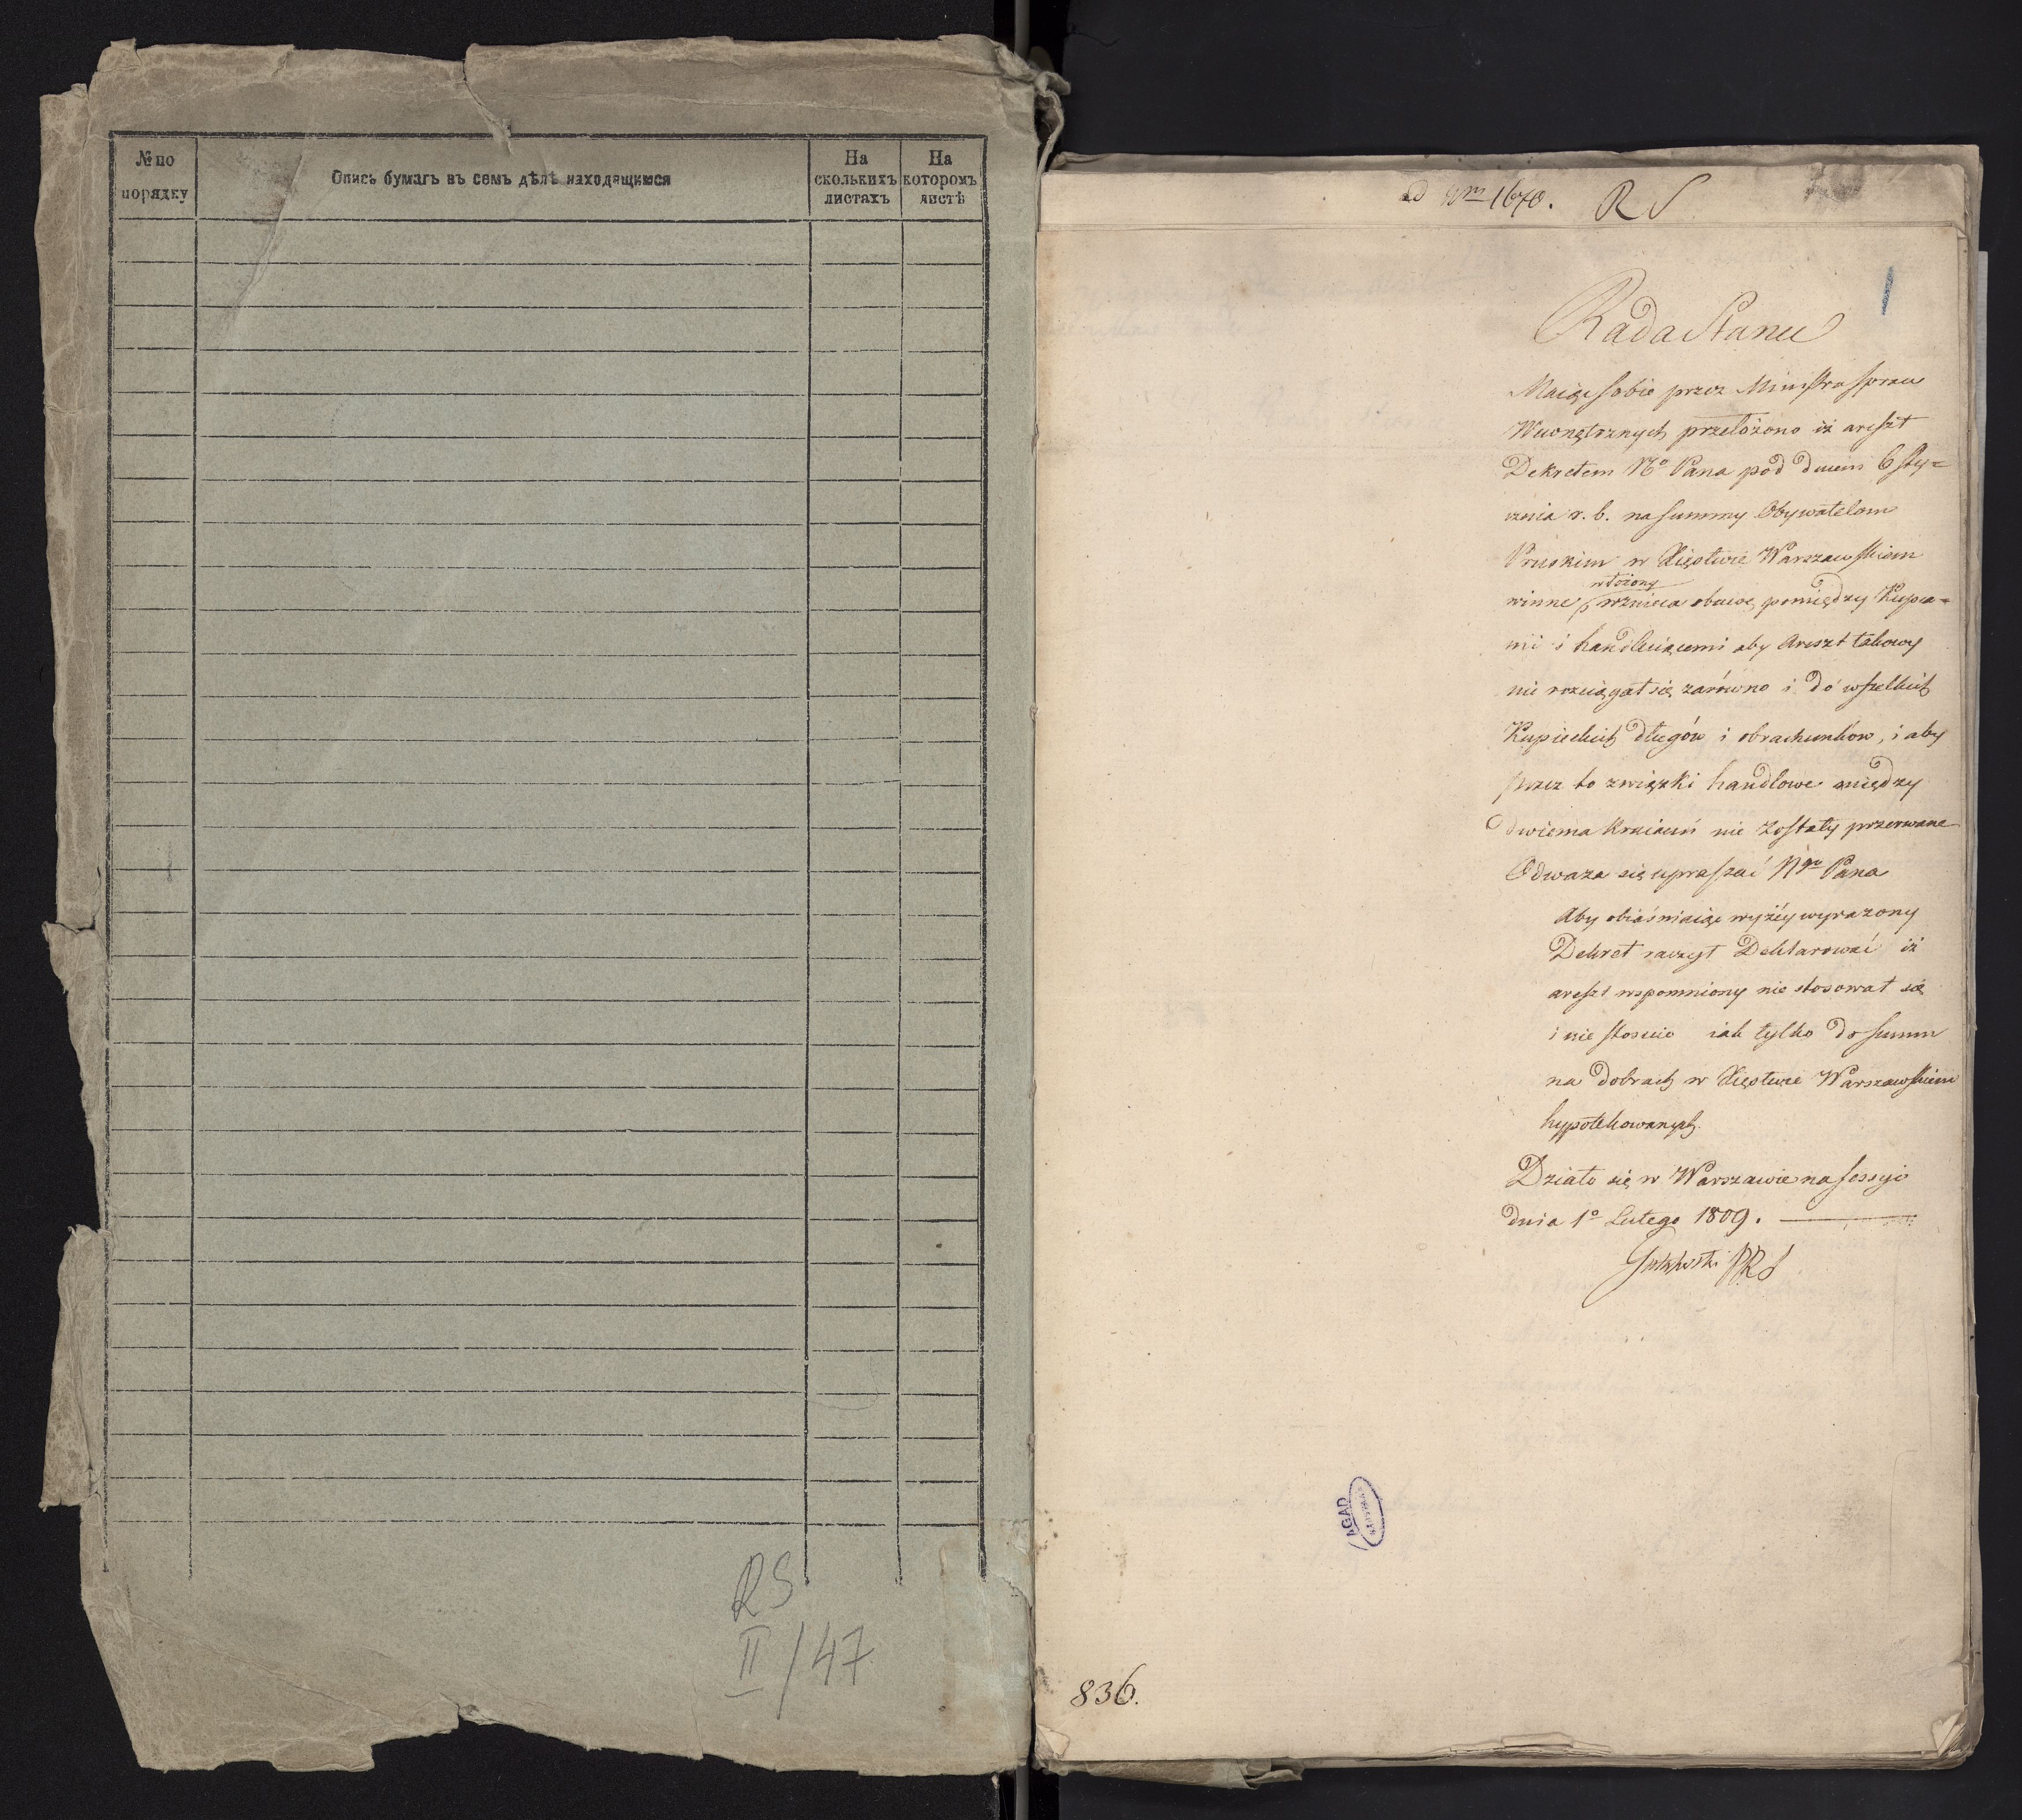 № по порядку
Опись бумагъ въ семъ дѣлѣ находящиюся
На сколькихъ листахъ
На которомъ листѣ
RS
II/47
ad Nrm 1670. RS
1
Rada Stanu
Maiąc sobie przez Ministra spraw
Wewnętrznych przełożono iż areszt
Dekretem Ngo Pana pod dniem 6 Sty=
cznia r. b. na summy Obywatelom
Pruskim w Xięstwie Warszawskiem
włożony
winne wznieca obawę pomiędzy Kupca=
mi i handluiącemi aby Areszt takowy
nie rozciągał się zarówno i do wszelkich
Kupieckich długów i obrachunków, i aby
przez to związki handlowe między
dwiema Kraiami nie zostały przerwane
Odważa się upraszać Ngo Pana
Aby obiaśniaiąc wyżéy wyrażony
Dekret raczył Deklarować iż
areszt wspomniony nie stosował się
i nie stosuie iak tylko do summ
na dobrach w Xięstwie Warszawskiem
hypotekowanych.
Działo się w Warszawie na Sessyi
dnia 1o Lutego 1809.
Gutakowski PRS
AGAD
WARSZAWA
836.